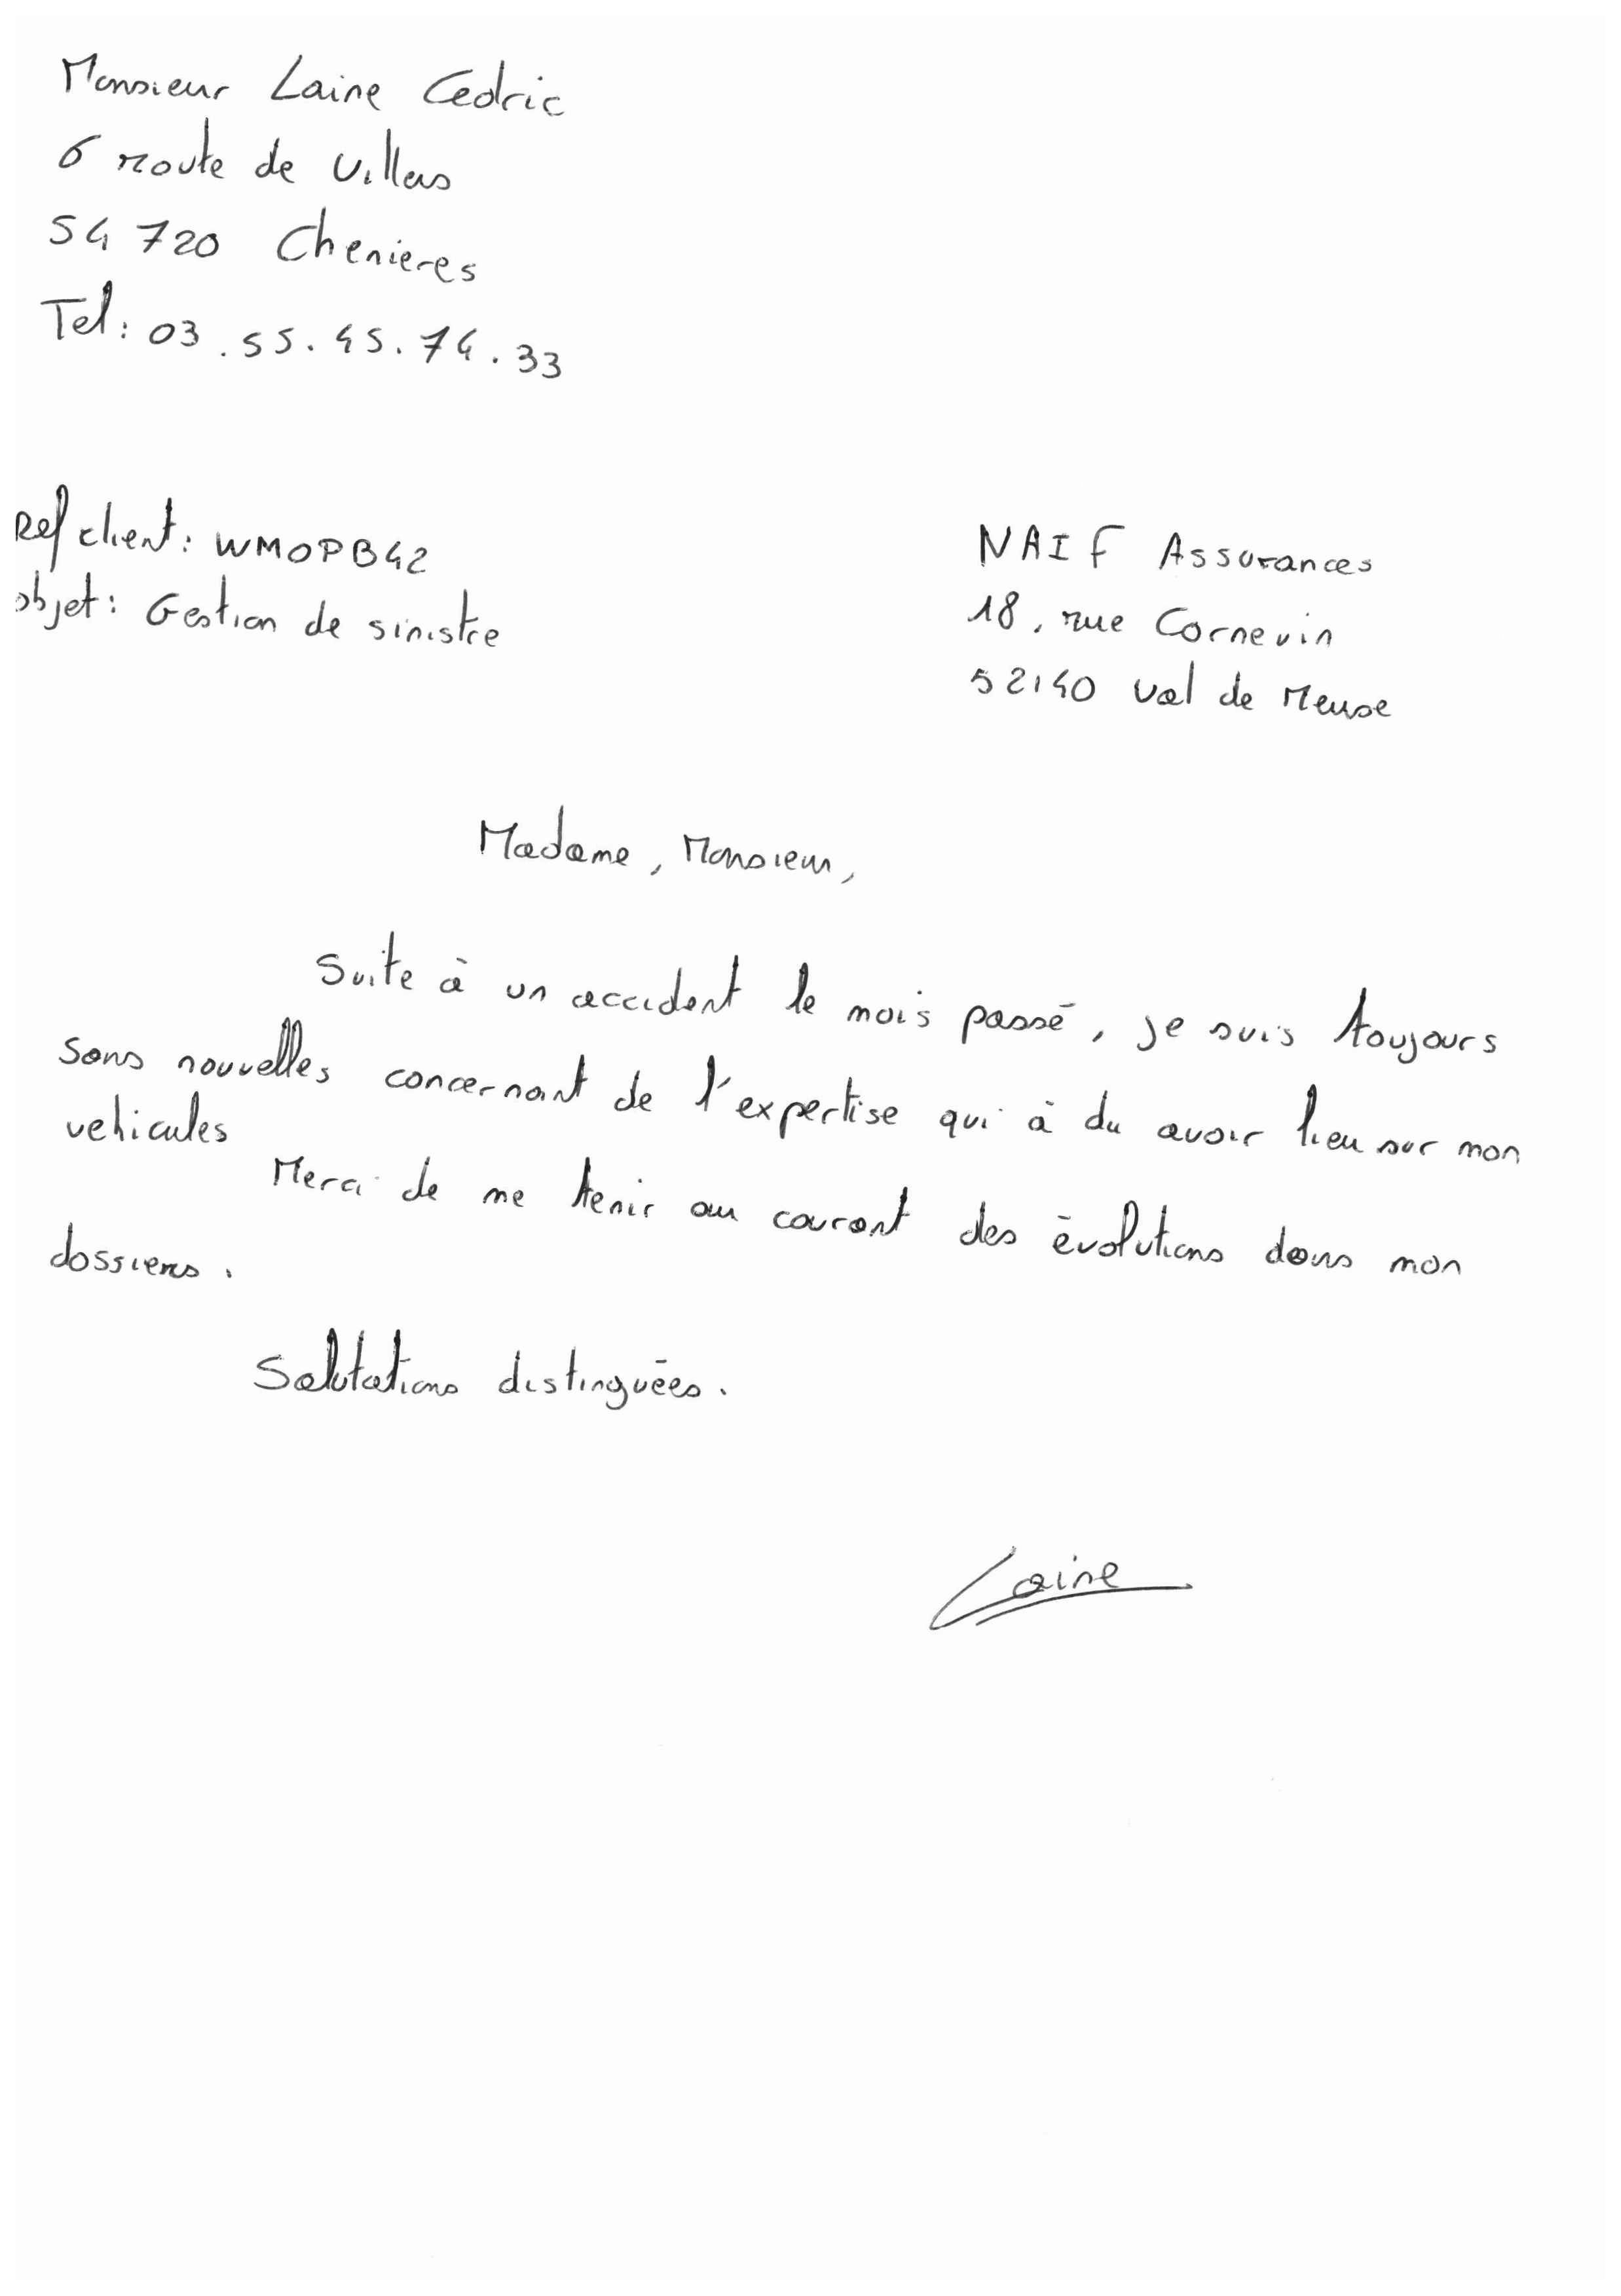 Monsieur Laine Cedric
6 route de Villers
54 720 Chenieres
Tel : 03.55.45.74.33
Ref client : WMOPB42
objet : Gestion de sinistre
NAIF Assurances
18, rue Cornevin
52140 Val de Meuse
Madame, Monsieur,
Suite à un accident le mois passé, je suis toujours
sans nouvelles concernant de l'expertise qui à du avoir lieu sur mon
vehicules
Merci de me tenir au courant des évolutions dans mon
dossiers.
Salutations distinguées.
Laine